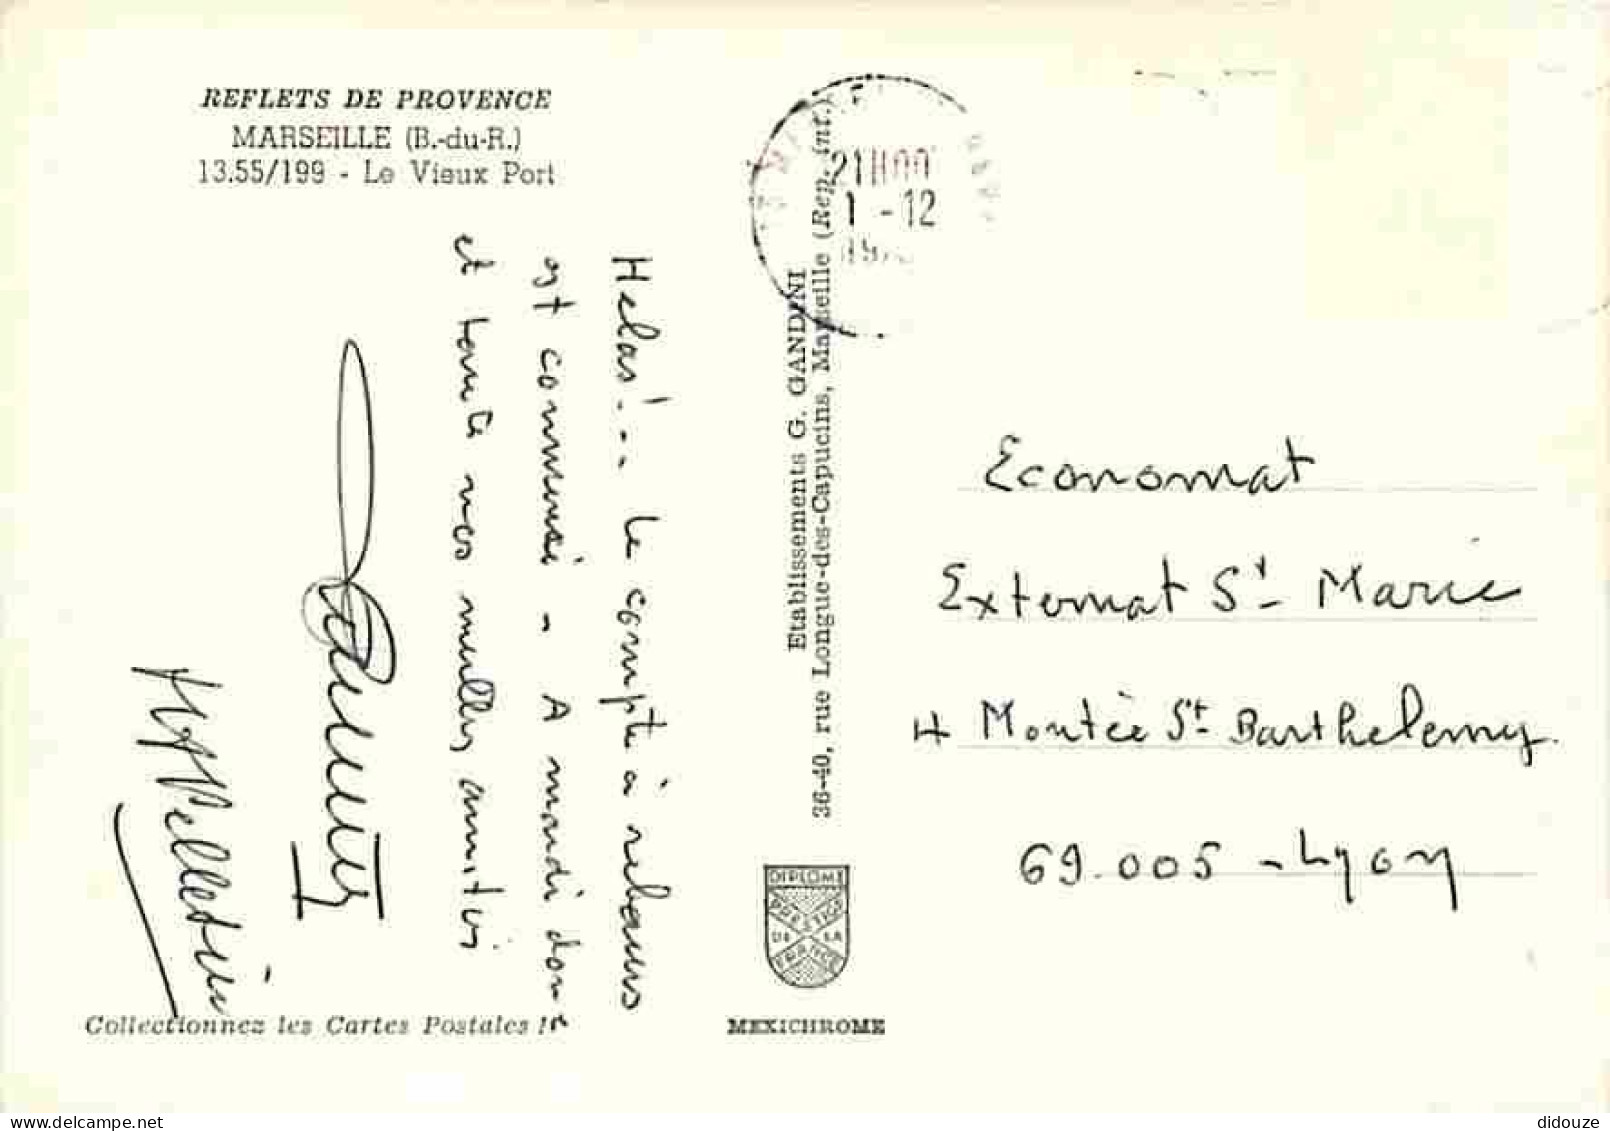 REFLETS DE PROVENCE
MARSEILLE (B.-du-R.)
13.55/199 - Le Vieux Port
Helas!.. le compte à rebours
est commencé - A mardi donc
et toute nos meilles amitiés
Pelletier
Collectionnez les Cartes Postales !
Etablissements G. GANDINI
36-40, rue Longue-des-Capucins, Marseille (Rep. int.)
21H00
1 -12
DIPLOME
PRESTIGE
DE LA
FRANCE
MEXICHROME
Economat
Externat St Marie
4 Montée St Barthelemy
69.005 - Lyon
didouze